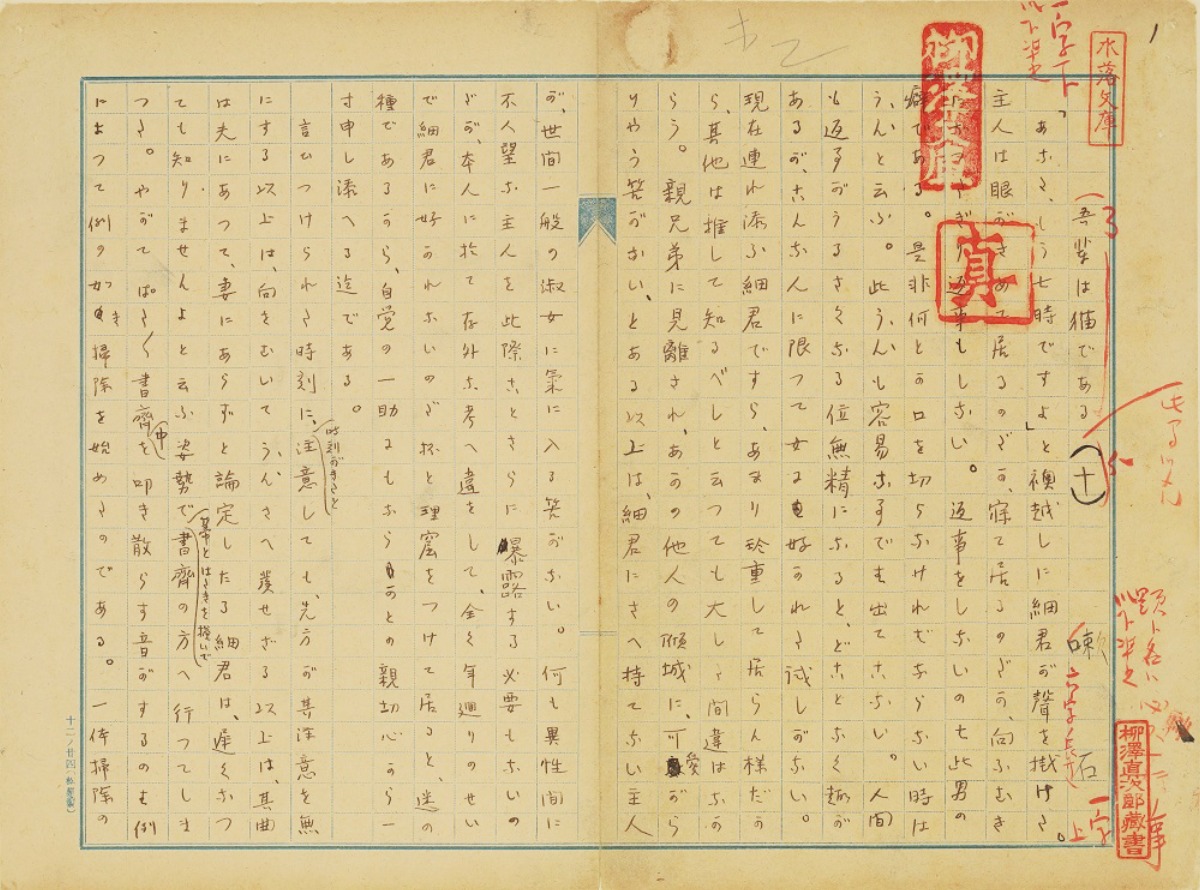 吾輩は猫である (十)
漱石
「あなた、もう七時ですよ」と襖越しに細君が聲を掛けた。
主人は眼がさめて居るのだか、寐て居るのだか、向ふむき
になつたぎり返事もしない。返事をしないのは此男の
癖である。是非何とか口を切らなければならない時は
うんと云ふ。此うんも容易な事では出てこない。人間
も返事がうるさくなる位無精になると、どことなく趣が
あるが、こんな人に限つて女に好かれた試しがない。
現在連れ添ふ細君ですら、あまり珍重して居らん様だか
ら、其他は推して知るべしと云つても大した間違はなか
らう。親兄弟に見離され、あかの他人の傾城に、可愛がら
りやう筈がない、とある以上は、細君にさへ持てない主人
が、世間一般の淑女に氣に入る筈がない。何も異性間に
不人望な主人を此際ことさらに暴露する必要もないの
だが、本人に於て存外な考へ違をして、全く年廻りのせい
で細君に好かれないのだ抔と理窟をつけて居ると、迷の
種であるから、自覚の一助にもならうかとの親切心から一
寸申し添へる迄である。
言ひつけられた時刻に、時刻がきたと注意しても、先方が其注意を無
にする以上は、向をむいてうんさへ発せざる以上は、其曲
は夫にあつて、妻にあらずと論定したる細君は、遅くなつ
ても知りませんよと云ふ姿勢で箒とはたきを擔いで書齋の方へ行つてしま
つた。やがてぱた〱書齋中を叩き散らす音がするのは例
によつて例の如き掃除を始めたのである。一体掃除の
水落文庫
真
柳澤直次郎藏書
一字下
以下準之
一字上
1